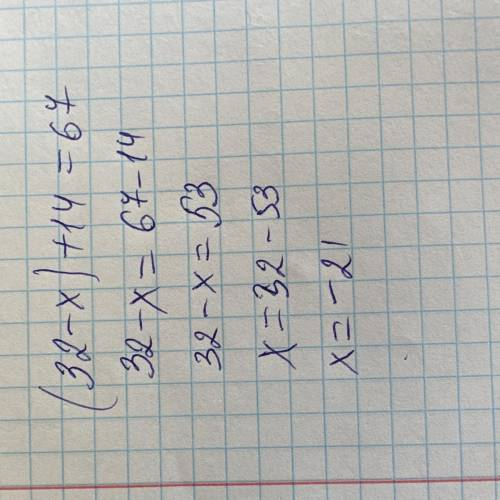 (32-x)+14=67
32-x=67-14
32-x=53
x=32-53
x=-21